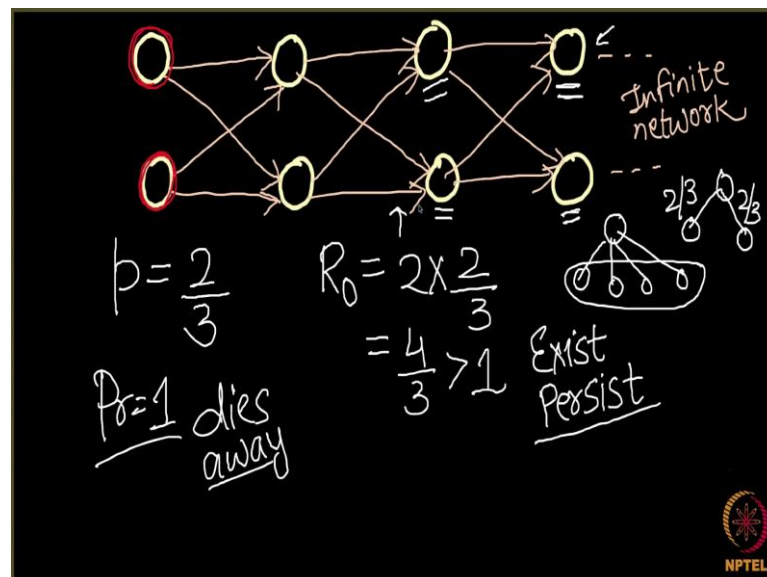 Infinite
network
2/3 2/3
p = 2/3
R₀ = 2 × 2/3
= 4/3 > 1
Exist
Persist
Pr=1 dies
away
NPTEL